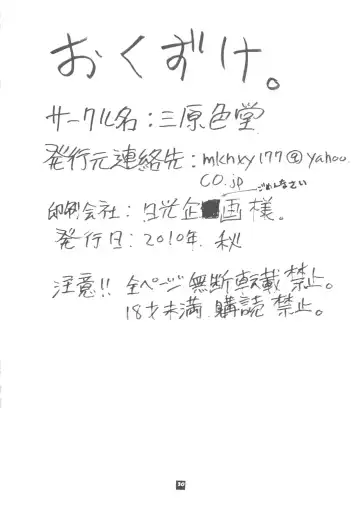 おくずけ。
サークル名：三原色堂
発行元連絡先：mknxy177@yahoo.
co.jp ごめんなさい
印刷会社：日光企画様。
発行日：2010年 秋
注意!! 全ページ無断転載禁止。
18才未満 購読 禁止。
30